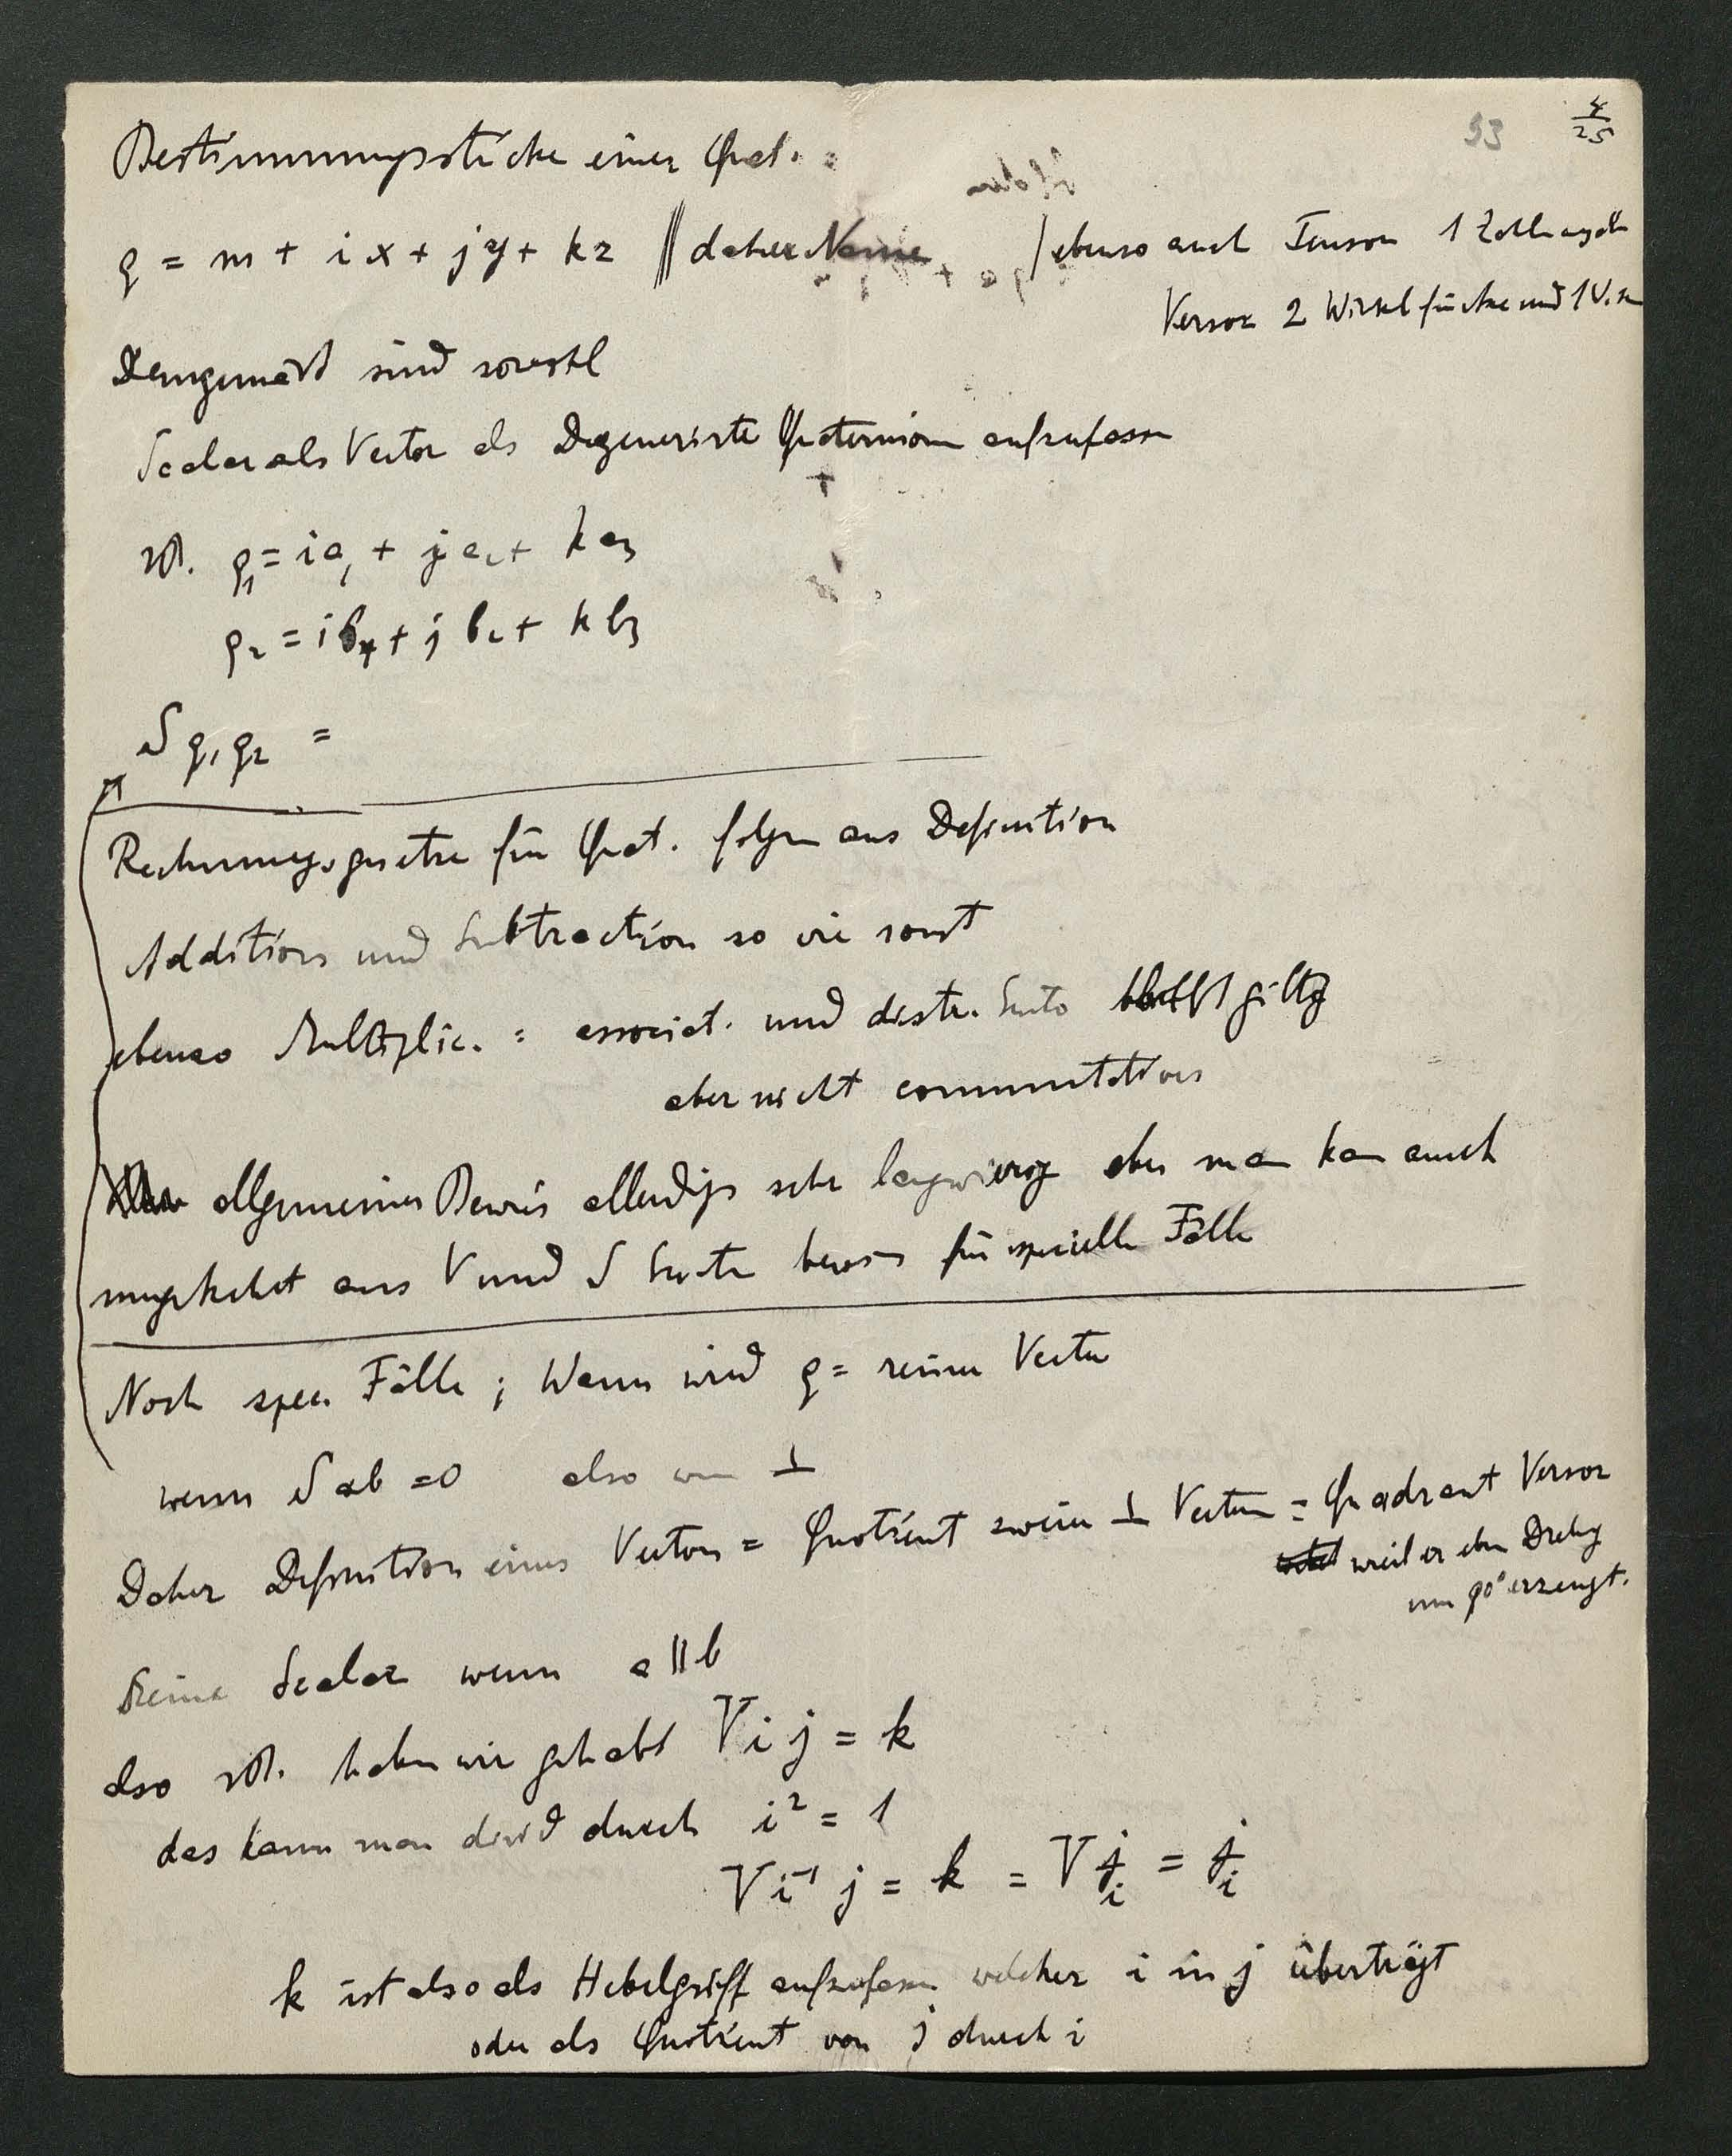 93
4/25
Bestimmungsstücke einer Quat. :
q = m + i x + j y + k z ||| daher Name / ebenso auch Tensor 1 Zahlangabe
Versor 2 Winkel für Axe und 1
Demgemäß sind sowohl
Scalar als Vector als Degenerirte Quaternionen aufzufassen
zB. q₁ = i a₁ + j a₂ + k a₃
q₂ = i b₁ + j b₂ + k b₃
S q₁ q₂ =
Rechnungsgesetze für Quat. folgen aus Definition
Addition und Subtraction so wie sonst
ebenso Multiplic. : associat. und distr. Gesetz bleibt giltig
aber nicht commutatives
allgemeiner Beweis allerdings sehr langwierig aber man kann auch
umgekehrt aus V und S Gesetze beweisen für specielle Fälle
Noch spec. Fälle ; Wann wird q = reiner Vector
wenn S ab = 0 also wenn ⊥
Daher Definition eines Vectors = Quotient zweier ⊥ Vectoren = Quadrant Versor
weil er eben Drehung
um 90° erzeugt.
Reiner Scalar wenn a || b
also zB. haben wir gehabt V i j = k
das kann man divid durch i² = 1
V i⁻¹ j = k = V j/i = j/i
k ist also als Hebelgriff aufzufassen welcher i in j überträgt
oder als Quotient von j durch i